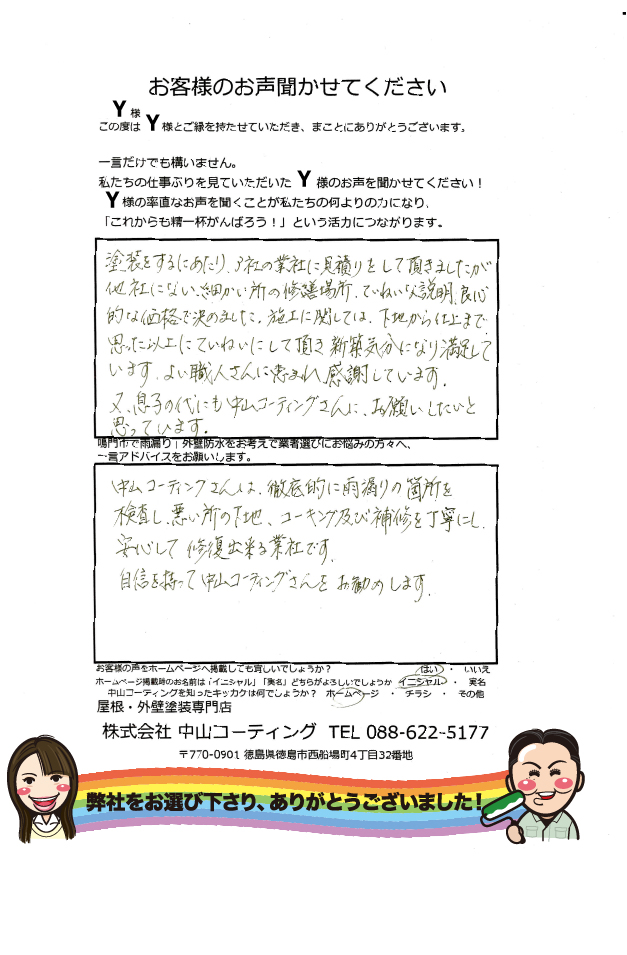 お客様のお声聞かせてください
Y 様
この度は Y 様とご縁を持たせていただき、まことにありがとうございます。
一言だけでも構いません。
私たちの仕事ぶりを見ていただいた Y 様のお声を聞かせてください！
Y 様の率直なお声を聞くことが私たちの何よりの力になり、
「これからも精一杯がんばろう！」という活力につながります。
塗装をするにあたり、3社の業社に見積りをして頂きましたが
他社にない、細かい所の修繕場所、ていねいな説明、良心
的な価格で決めました。施工に関しては、下地から仕上まで
思った以上にていねいにして頂き新築気分になり満足して
います。よい職人さんに恵まれ感謝しています。
又、息子の代にも中山コーティングさんに、お願いしたいと
思っています。
鳴門市で雨漏り、外壁防水をお考えで業者選びにお悩みの方々へ、
一言アドバイスをお願いします。
中山コーティングさんは、徹底的に雨漏りの箇所を
検査し、悪い所の下地、コーキング及び補修を丁寧にし、
安心して修復出来る業社です。
自信を持って中山コーティングさんをお勧めします。
お客様の声をホームページへ掲載しても宜しいでしょうか？ はい ・ いいえ
ホームページ掲載時のお名前は「イニシャル」「実名」どちらがよろしいでしょうか イニシャル ・ 実名
中山コーティングを知ったキッカケは何でしょうか？ ホームページ ・ チラシ ・ その他
屋根・外壁塗装専門店
株式会社 中山コーティング TEL 088-622-5177
〒770-0901 徳島県徳島市西船場町4丁目32番地
弊社をお選び下さり、ありがとうございました！